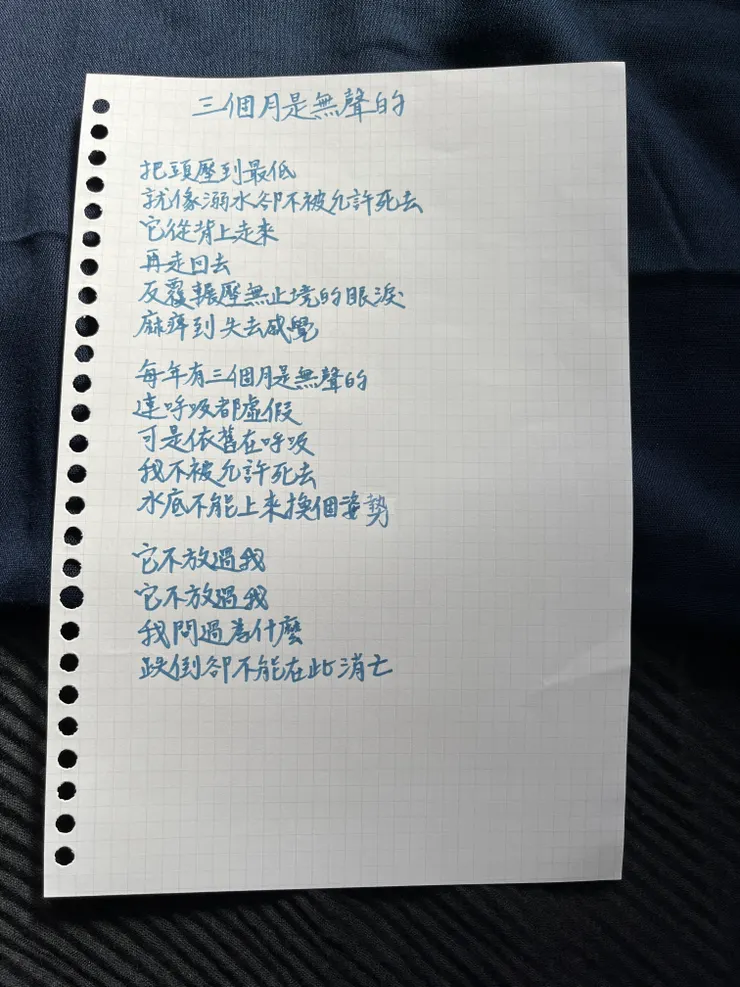 三個月是無聲的
把頭壓到最低
就像溺水卻不被允許死去
它從背上走來
再走回去
反覆輾壓無止境的眼淚
麻痺到失去感覺
每年有三個月是無聲的
連呼吸都虛假
可是依舊在呼吸
我不被允許死去
水底不能上來換個姿勢
它不放過我
它不放過我
我問過為什麼
跌倒卻不能在此消亡